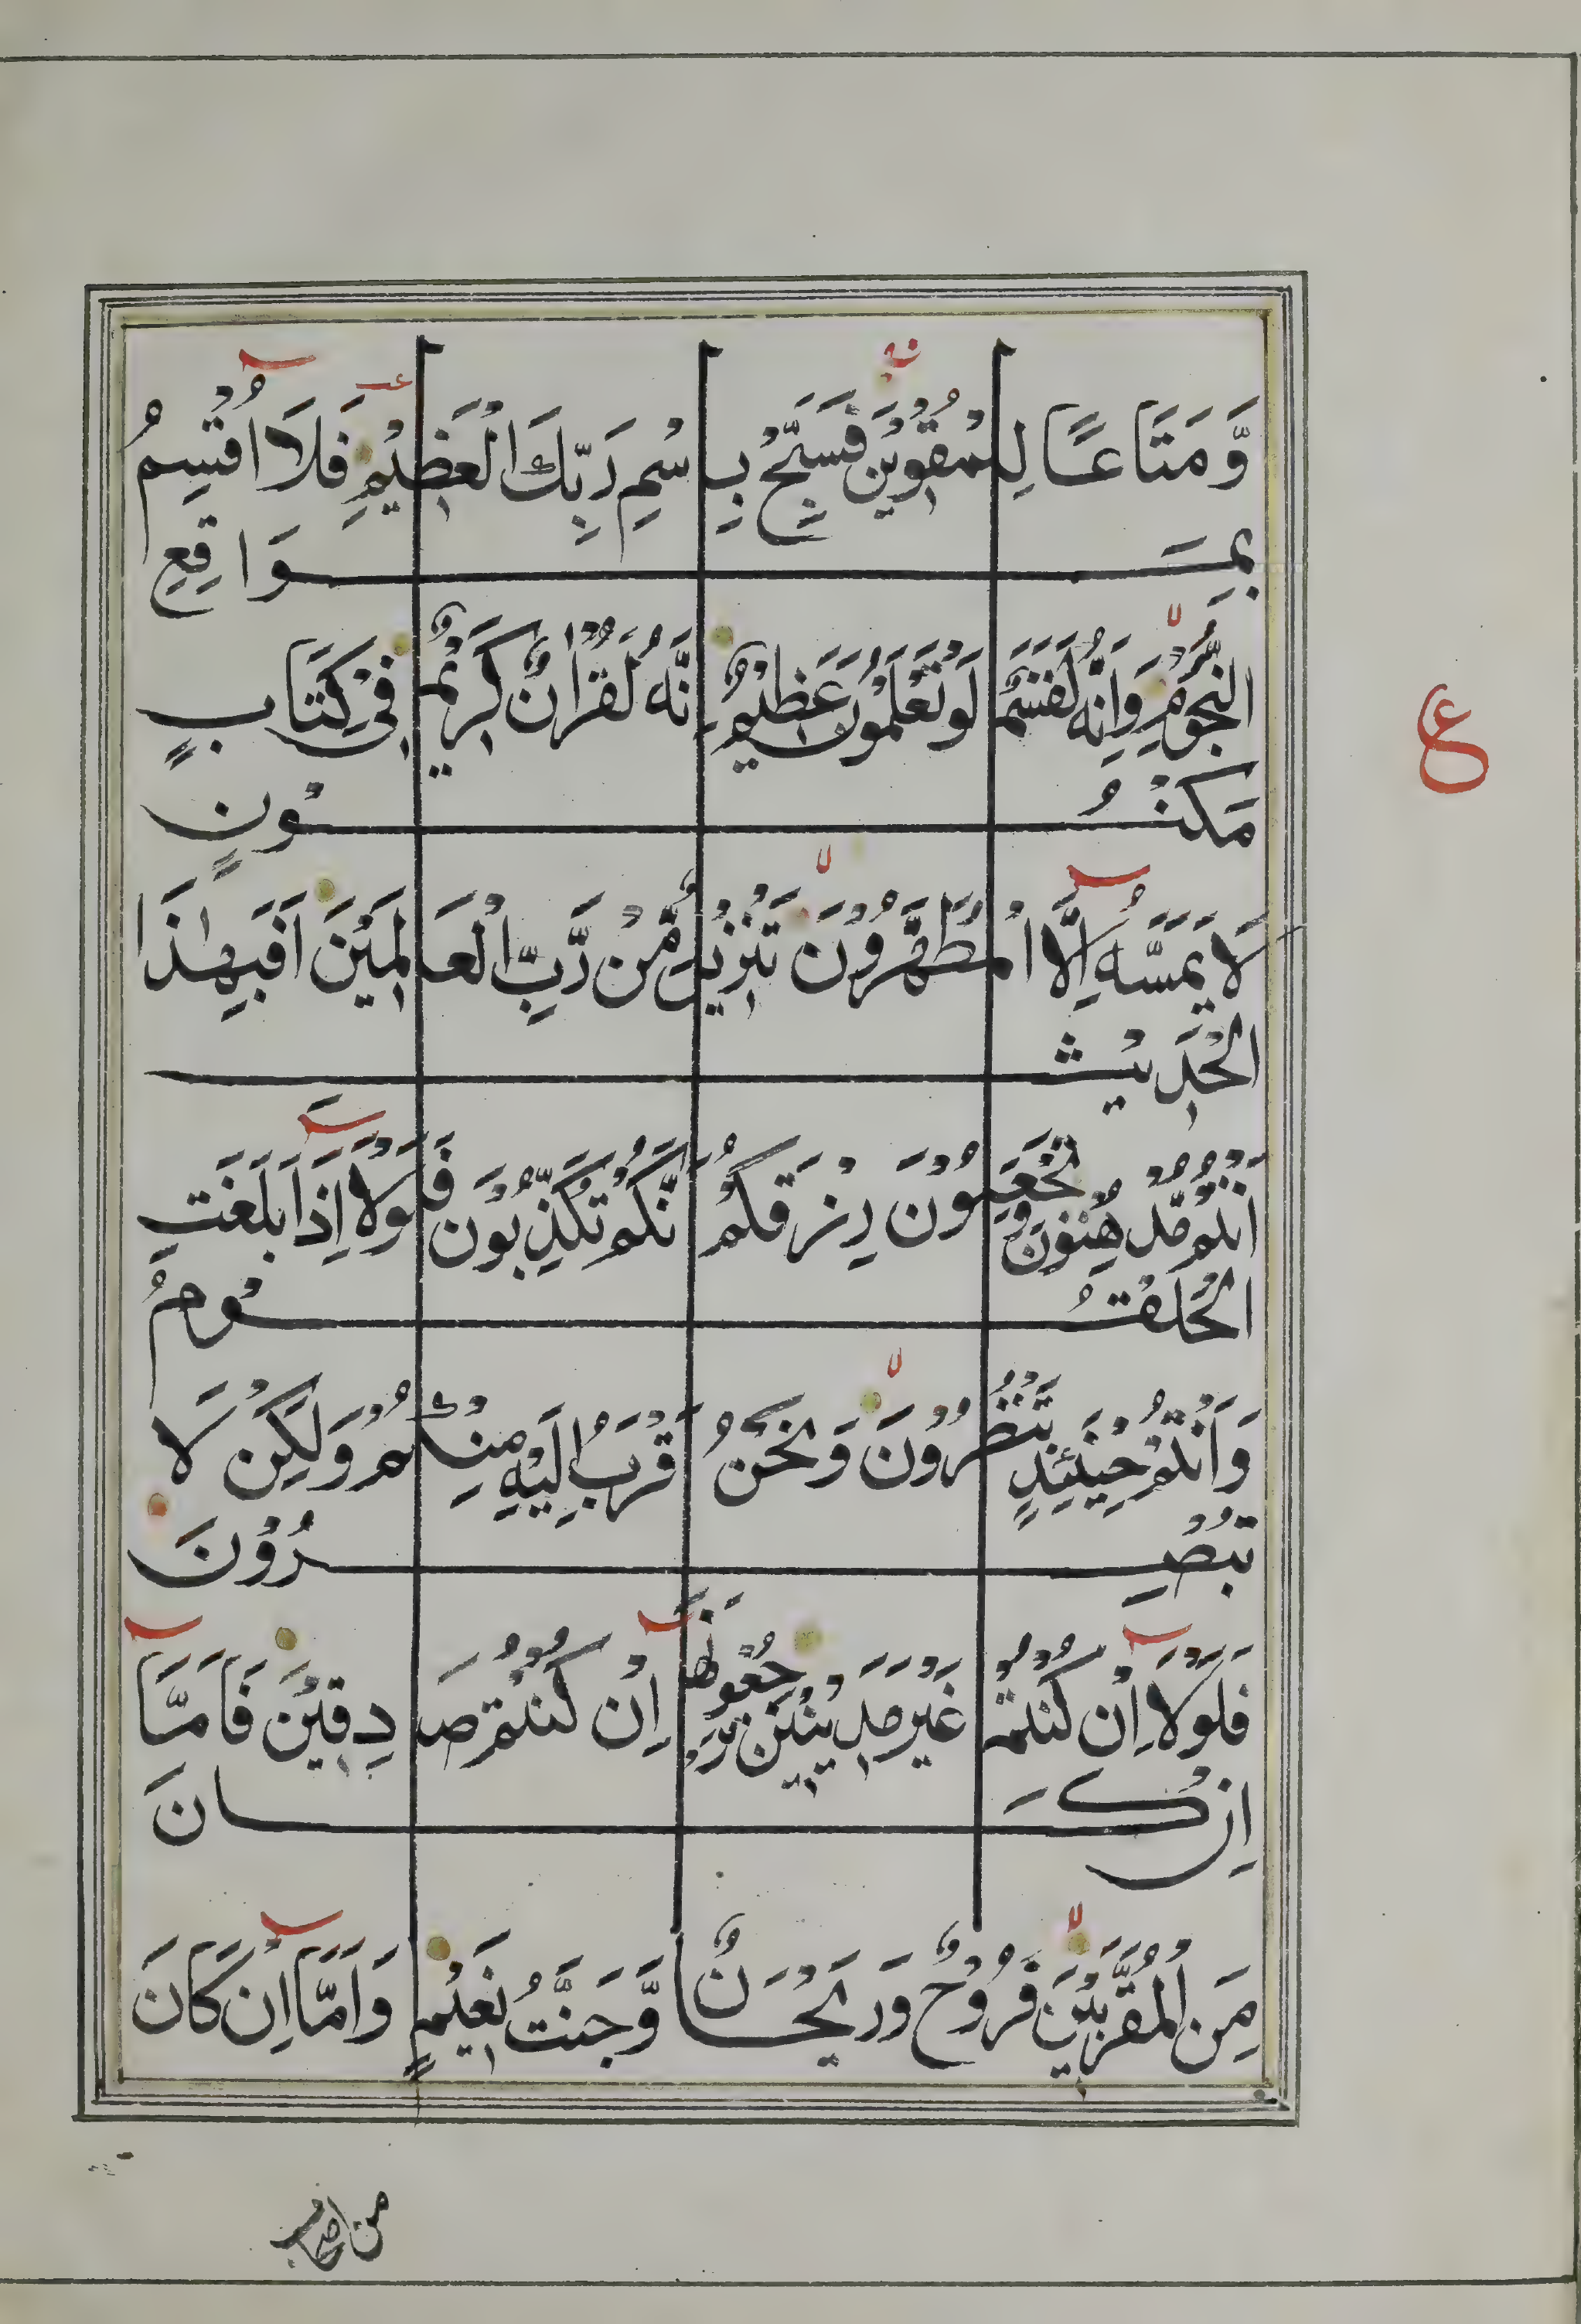 وَّمَتَاعًا لِلْمُقْوِيْنَ فَسَبِّحْ بِاسْمِ رَبِّكَ الْعَظِيْمِ فَلَا اُقْسِمُ
بِمَوَاقِعِ
النُّجُوْمِ وَاِنَّهٗ لَقَسَمٌ لَوْ تَعْلَمُوْنَ عَظِيْمٌ اِنَّهٗ لَقُرْاٰنٌ كَرِيْمٌ فِيْ كِتَابٍ
مَكْنُوْنٍ
لَا يَمَسُّهٗ اِلَّا الْمُطَهَّرُوْنَ تَنْزِيْلٌ مِّنْ رَّبِّ الْعَالَمِيْنَ اَفَبِهٰذَا
الْحَدِيْثِ
اَنْتُمْ مُّدْهِنُوْنَ وَتَجْعَلُوْنَ رِزْقَكُمْ اَنَّكُمْ تُكَذِّبُوْنَ فَلَوْلَا اِذَا بَلَغَتِ
الْحُلْقُوْمَ
وَاَنْتُمْ حِيْنَئِذٍ تَنْظُرُوْنَ وَنَحْنُ اَقْرَبُ اِلَيْهِ مِنْكُمْ وَلٰكِنْ لَا
تُبْصِرُوْنَ
فَلَوْلَا اِنْ كُنْتُمْ غَيْرَ مَدِيْنِيْنَ تَرْجِعُوْنَهَا اِنْ كُنْتُمْ صَدِقِيْنَ فَاَمَّا
اِنْ كَانَ
مِنَ الْمُقَرَّبِيْنَ فَرَوْحٌ وَرَيْحَانٌ وَّجَنَّتُ نَعِيْمٍ وَاَمَّا اِنْ كَانَ
من اصحاب
ع